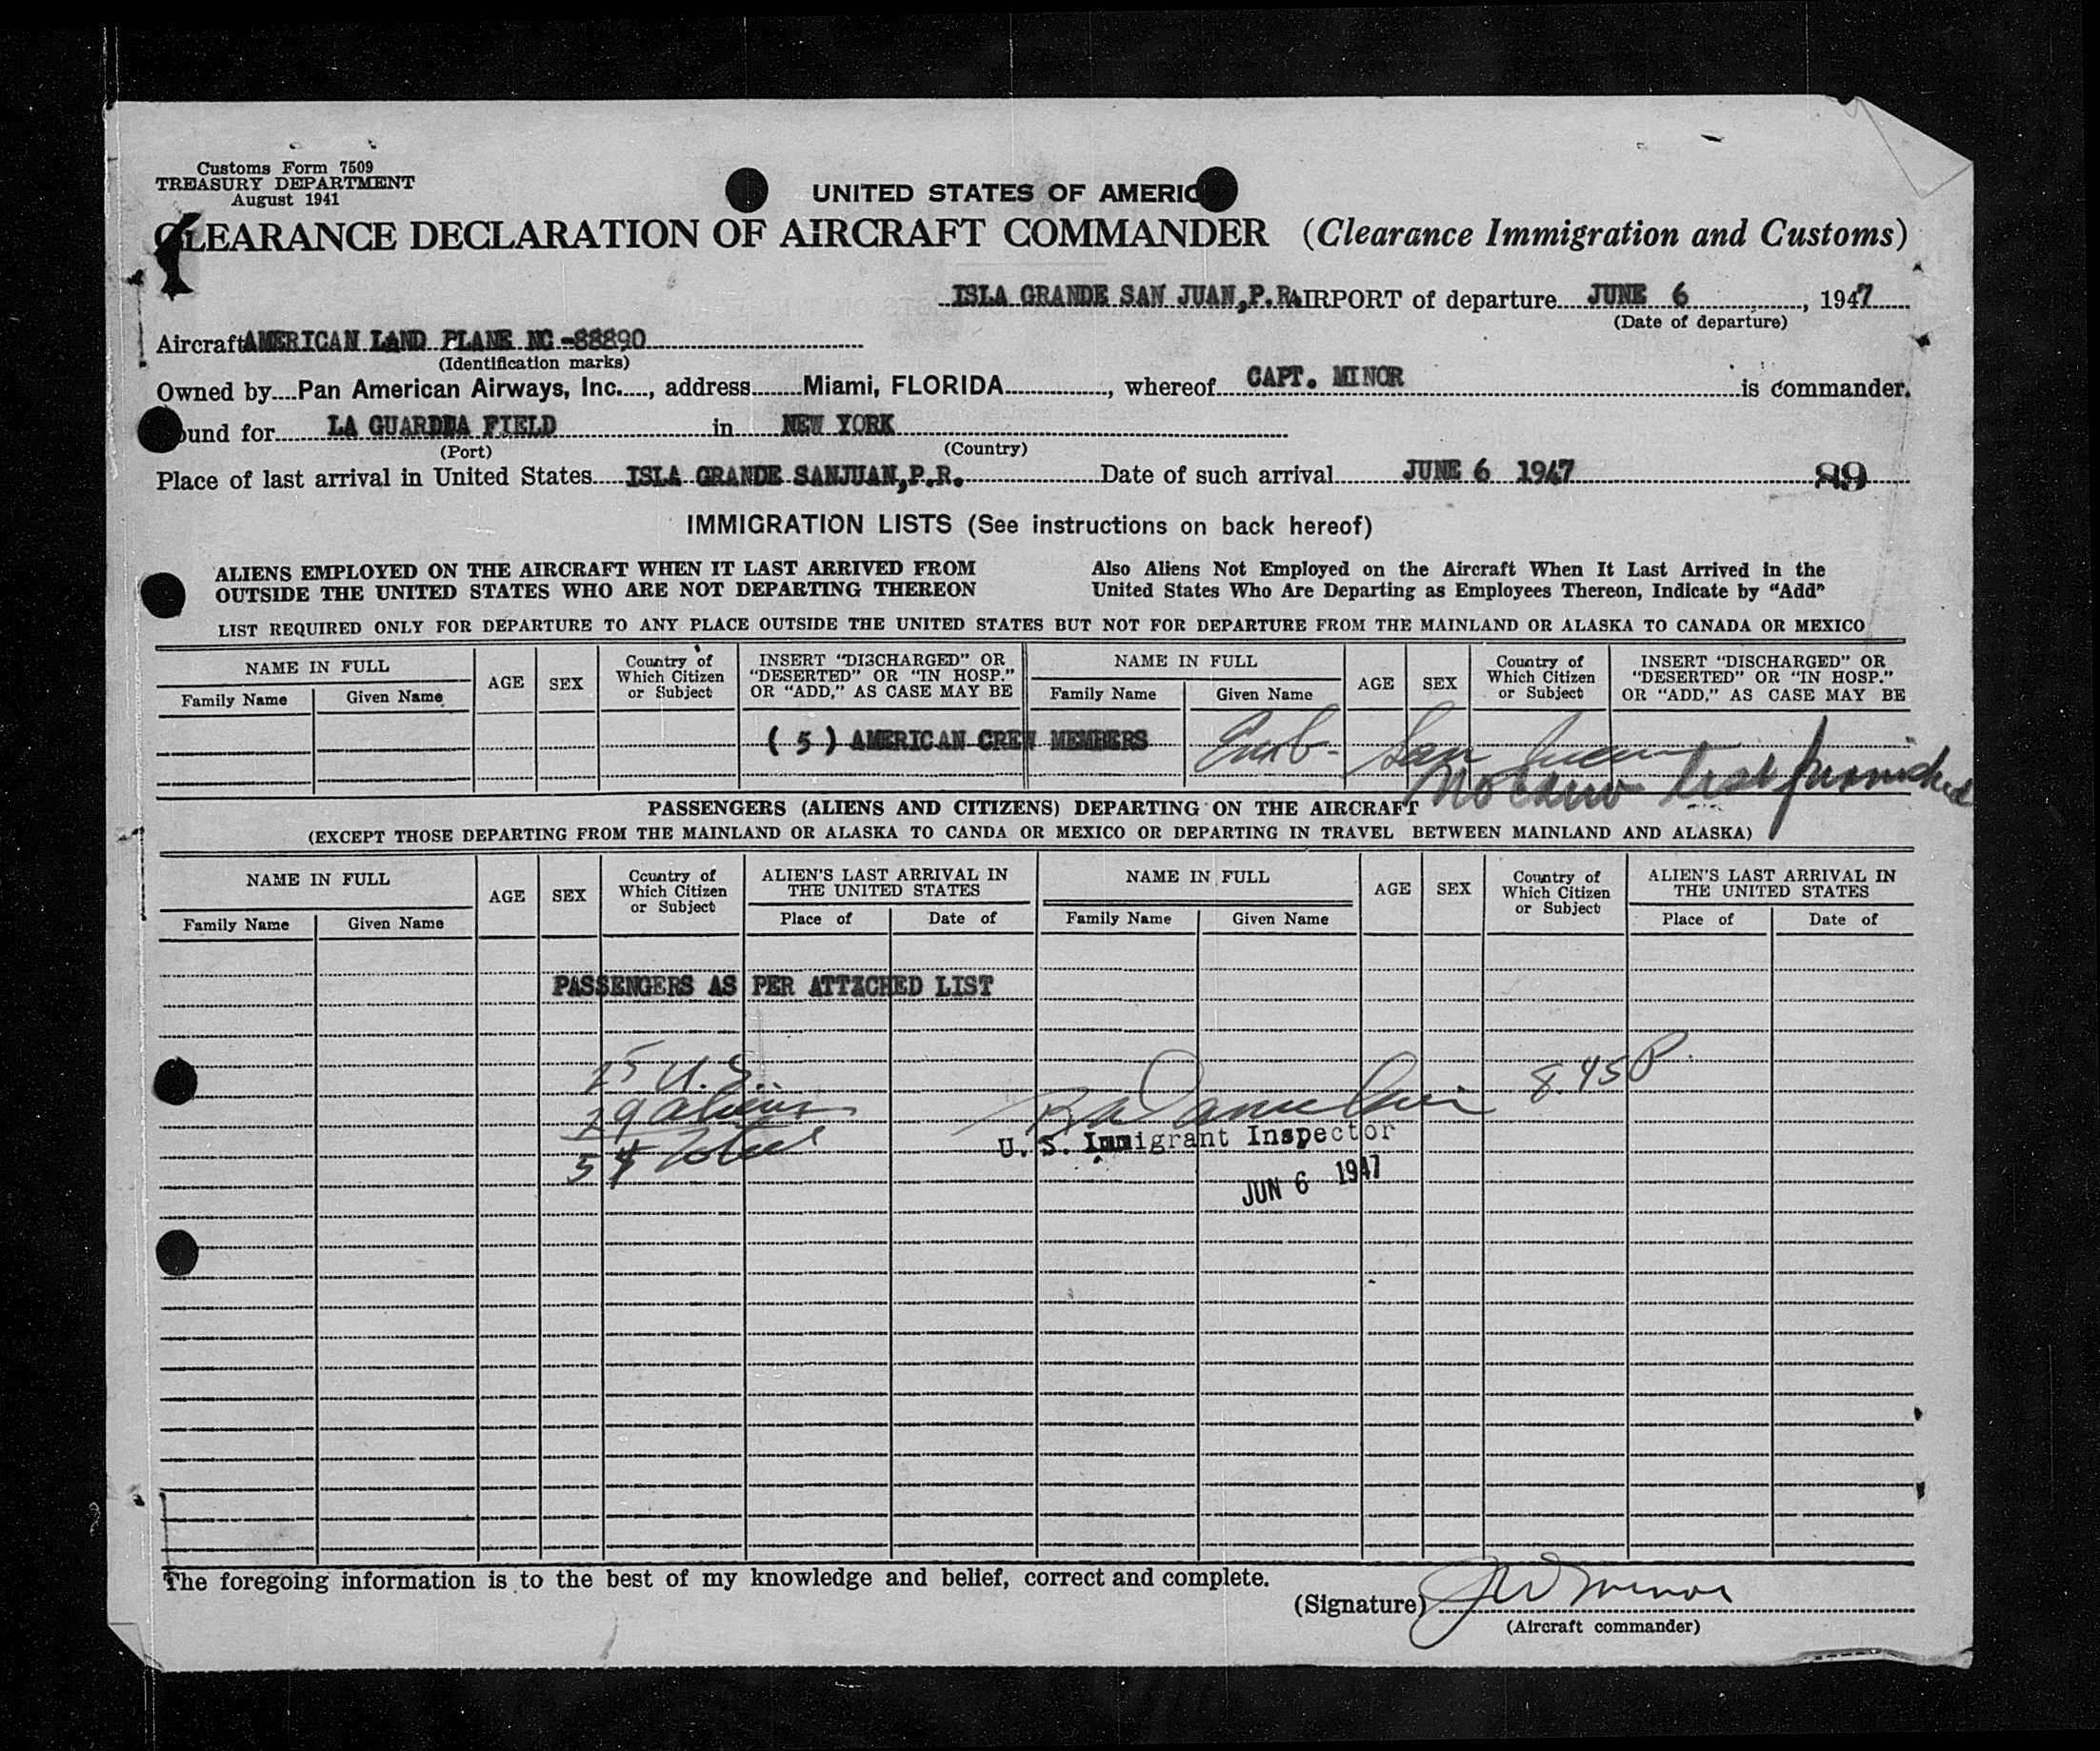 Customs Form 7509
TREASURY DEPARTMENT
August 1941
UNITED STATES OF AMERIC
CLEARANCE DECLARATION OF AIRCRAFT COMMANDER (Clearance Immigration and Customs)
ISLA GRANDE SAN JUAN,P.R. AIRPORT of departure JUNE 6, 1947
(Date of departure)
Aircraft AMERICAN LAND PLANE NC-88890
(Identification marks)
Owned by Pan American Airways, Inc., address Miami, FLORIDA, whereof CAPT. MINOR is commander.
ound for LA GUARDIA FIELD in NEW YORK
(Port) (Country)
Place of last arrival in United States ISLA GRANDE SANJUAN,P.R. Date of such arrival JUNE 6 1947 89
IMMIGRATION LISTS (See instructions on back hereof)
ALIENS EMPLOYED ON THE AIRCRAFT WHEN IT LAST ARRIVED FROM
OUTSIDE THE UNITED STATES WHO ARE NOT DEPARTING THEREON
Also Aliens Not Employed on the Aircraft When It Last Arrived in the
United States Who Are Departing as Employees Thereon, Indicate by “Add”
LIST REQUIRED ONLY FOR DEPARTURE TO ANY PLACE OUTSIDE THE UNITED STATES BUT NOT FOR DEPARTURE FROM THE MAINLAND OR ALASKA TO CANADA OR MEXICO
NAME IN FULL AGE SEX Country of Which Citizen or Subject INSERT “DISCHARGED” OR “DESERTED” OR “IN HOSP.” OR “ADD,” AS CASE MAY BE NAME IN FULL AGE SEX Country of Which Citizen or Subject INSERT “DISCHARGED” OR “DESERTED” OR “IN HOSP.” OR “ADD,” AS CASE MAY BE
Family Name Given Name Family Name Given Name
( 5 ) AMERICAN CREW MEMBERS Emb- San Juan
No list furnished
PASSENGERS (ALIENS AND CITIZENS) DEPARTING ON THE AIRCRAFT
(EXCEPT THOSE DEPARTING FROM THE MAINLAND OR ALASKA TO CANDA OR MEXICO OR DEPARTING IN TRAVEL BETWEEN MAINLAND AND ALASKA)
NAME IN FULL AGE SEX Country of Which Citizen or Subject ALIEN’S LAST ARRIVAL IN THE UNITED STATES NAME IN FULL AGE SEX Country of Which Citizen or Subject ALIEN’S LAST ARRIVAL IN THE UNITED STATES
Family Name Given Name Place of Date of Family Name Given Name Place of Date of
PASSENGERS AS PER ATTACHED LIST
25 U.S.
29 aliens
54 total
8.45P.
U. S. Immigrant Inspector
JUN 6 1947
The foregoing information is to the best of my knowledge and belief, correct and complete.
(Signature) JW Minor
(Aircraft commander)